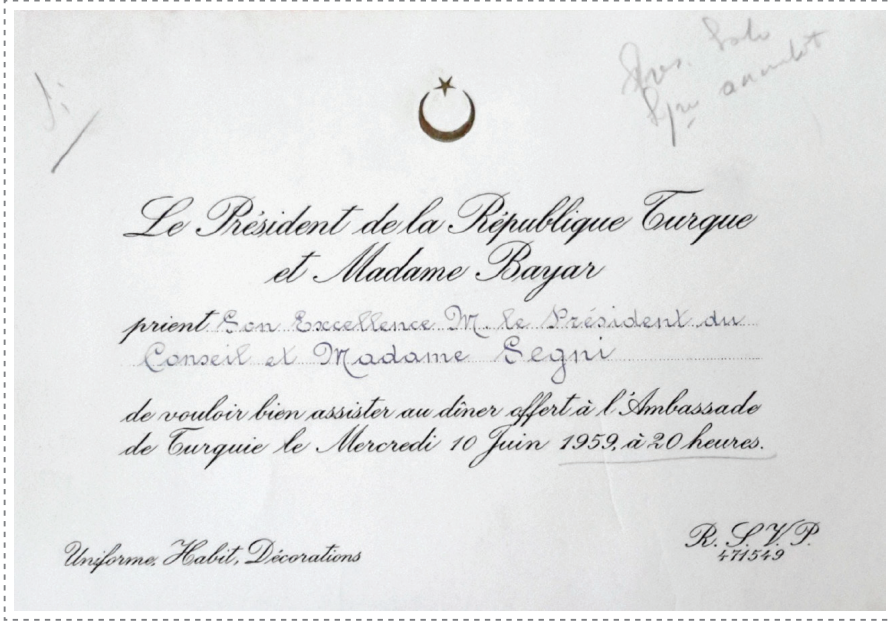 Le Président de la République Turque
et Madame Bayar
prient Son Excellence M. le Président du
Conseil et Madame Segni
de vouloir bien assister au dîner offert à l'Ambassade
de Turquie le Mercredi 10 Juin 1959, à 20 heures.
Uniforme, Habit, Décorations
R. S. V. P.
471549